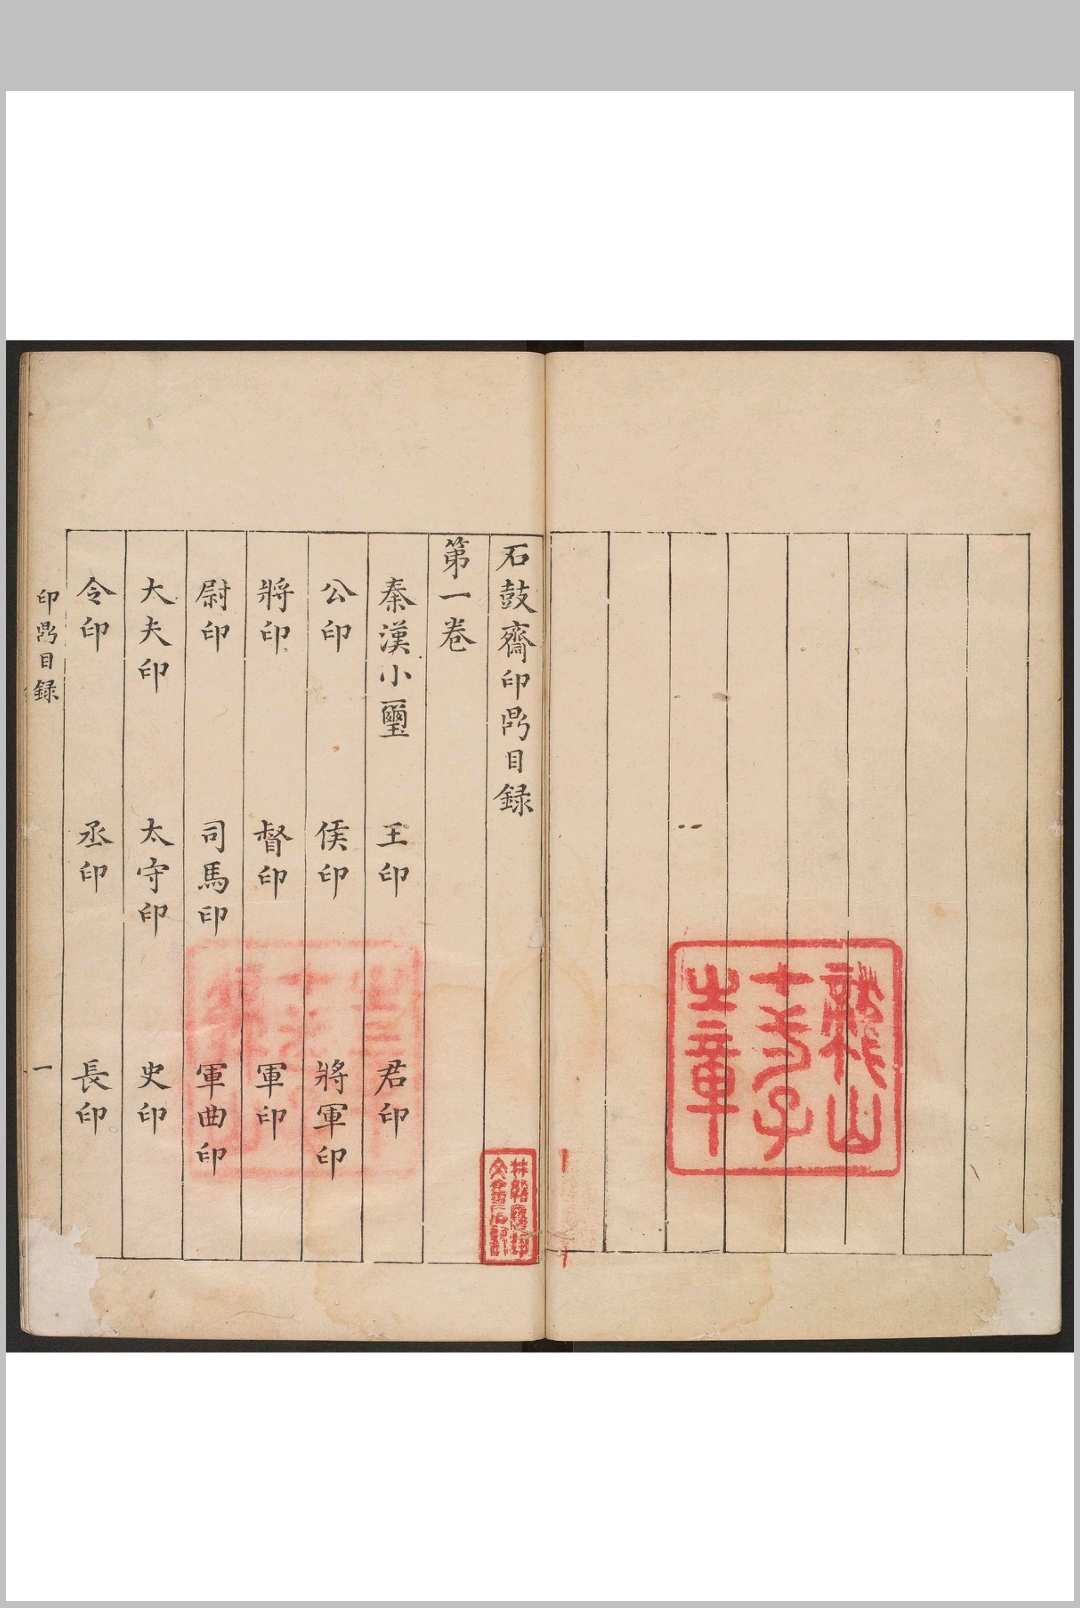 石鼓齋印鼎目録
第一卷
秦漢小璽 王印 君印
公印 侯印 將軍印
將印 督印 軍印
尉印 司馬印 軍曲印
大夫印 太守印 史印
令印 丞印 長印
印鼎目録 一